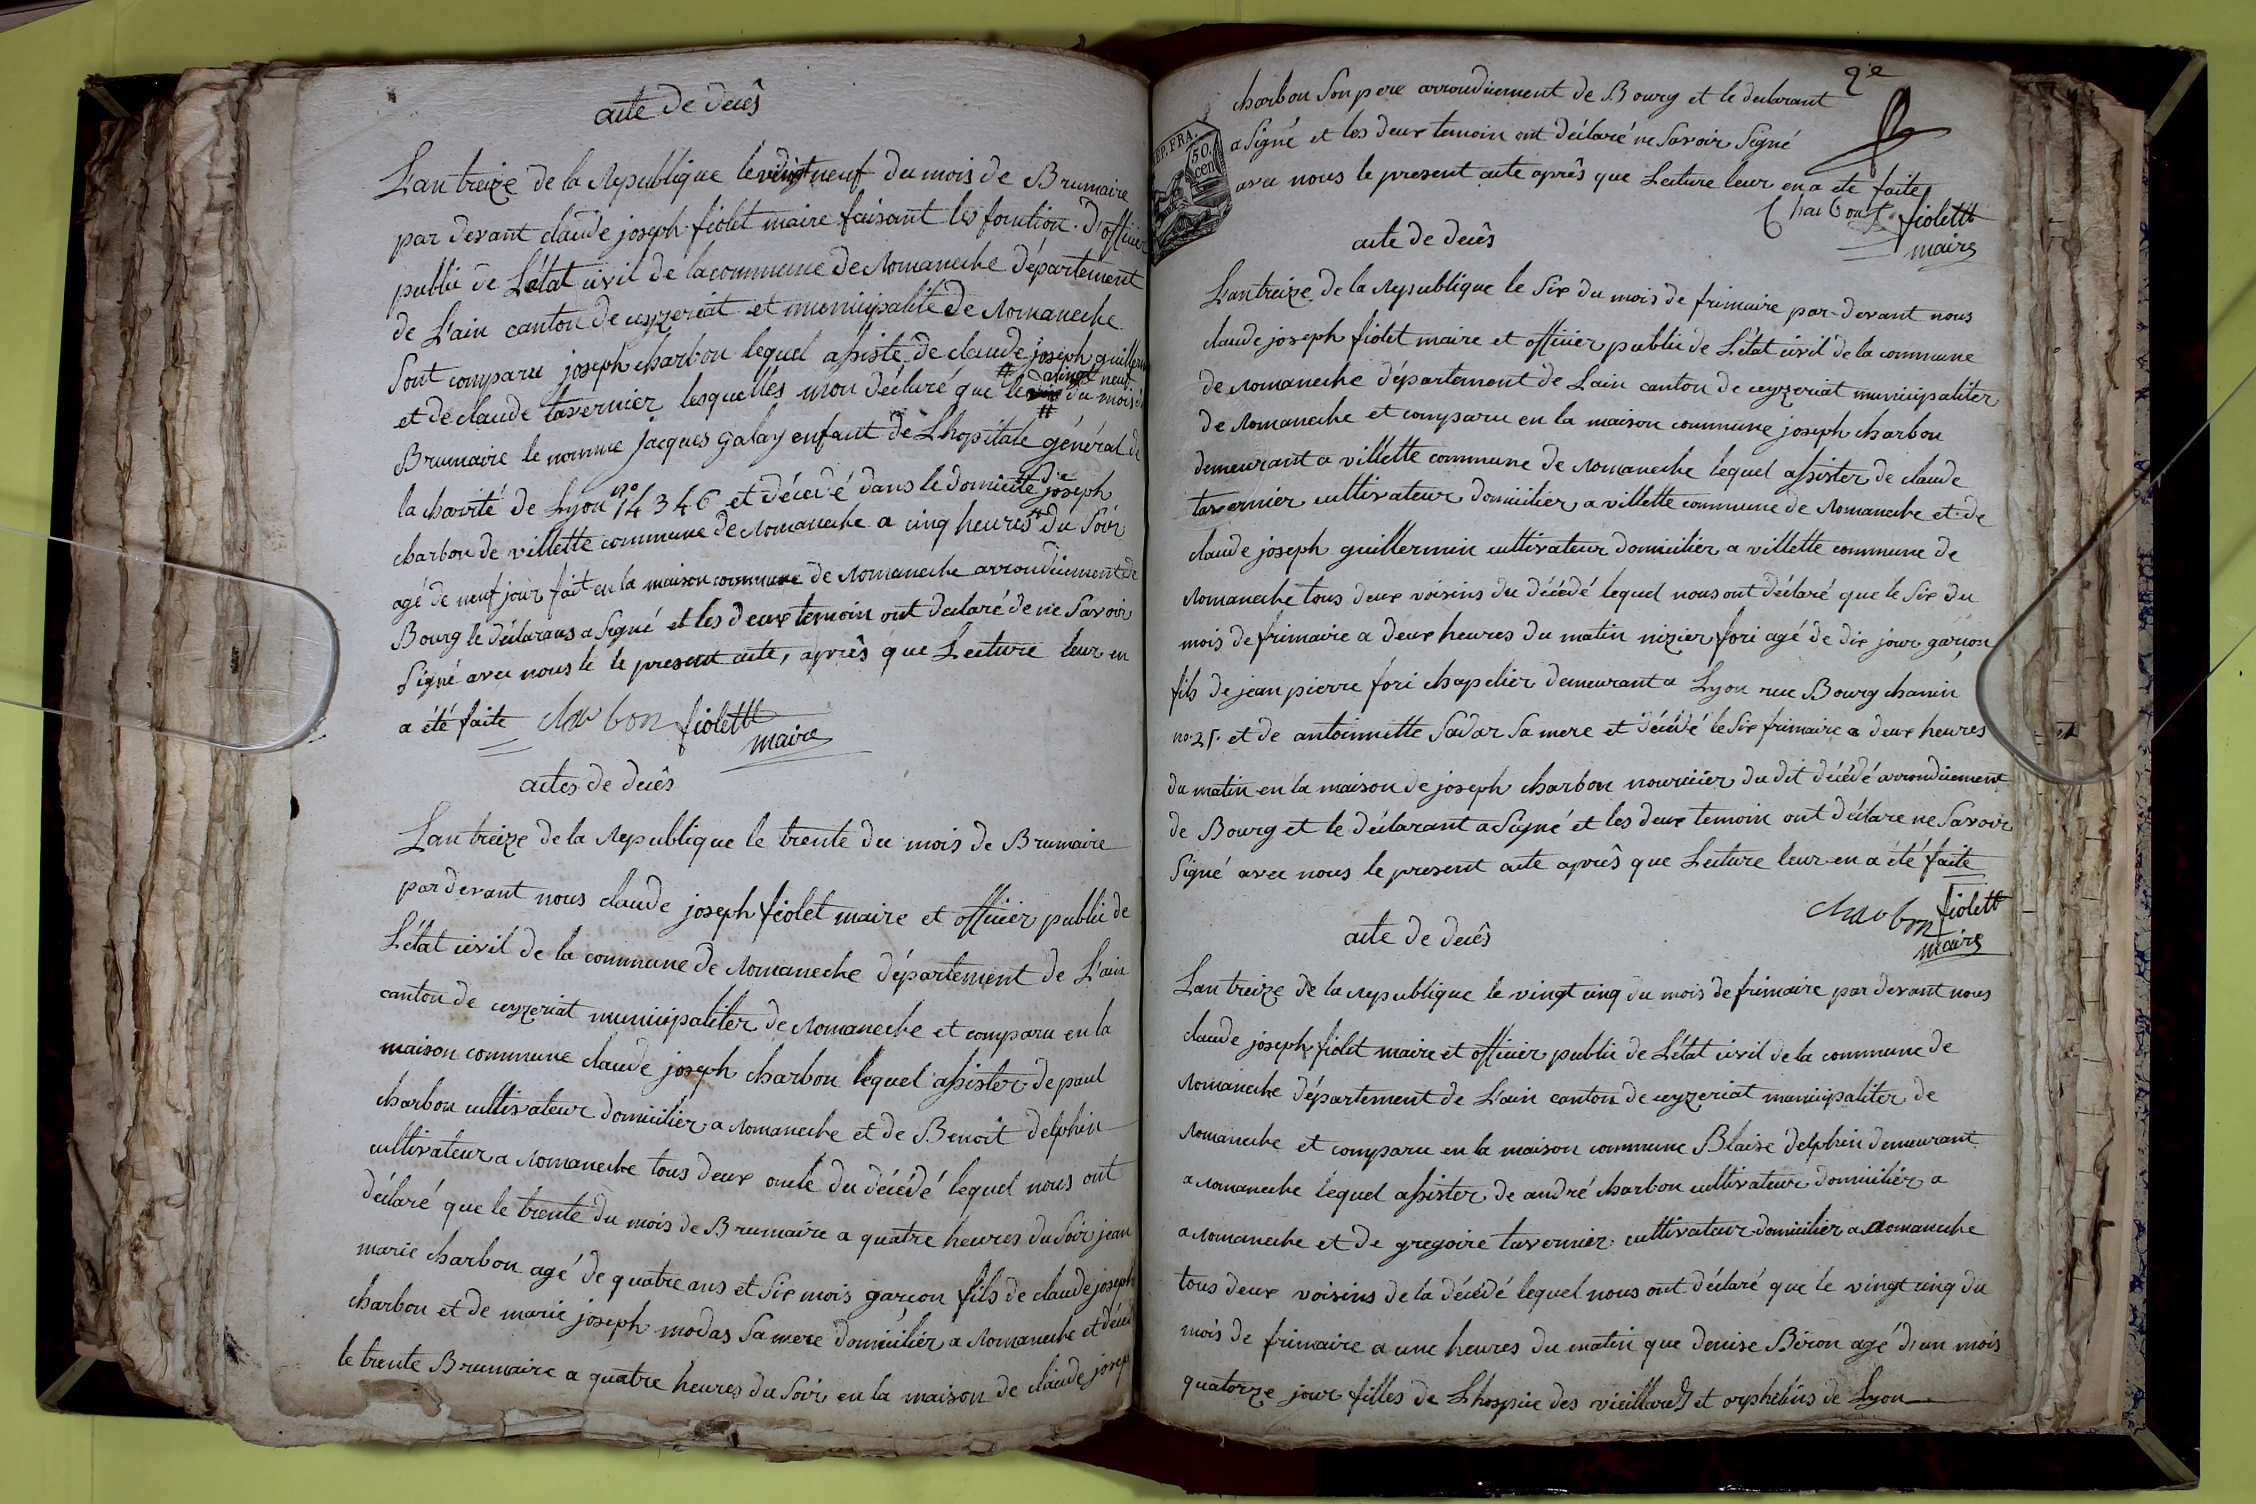 acte de decês
L'an treize de la Republique le vingt neuf du mois de Brumaire
par devant claude joseph fiolet maire faisant les fonction d'officier
public de L'état civil de la commune de Romaneche département
de L'ain canton de ceyzeriat et municipalité de Romaneche
Sont comparu joseph charbon lequel assisté de claude joseph guillermin
et de claude tavernier lesquelles mon déclaré que le # vingt neuf # du mois de
Brumaire le nomme jacques galay enfant de Lhopitale général de
la charité de Lyon no 14346 et décédé dans le domicile de joseph
charbon de villette commune de Romaneche a cinq heures du Soir
agé de neuf jour fait en la maison commune de Romaneche arrondicement de
Bourg le déclarans a Signé et les deux temoin ont declaré de ne Savoir
Signé avec nous le le present acte, aprês que Lecture leur en
a été faite charbon fiolett
maire
actes de decês
L'an treize de la Republique le trente du mois de Brumaire
par devant nous claude joseph fiolet maire et officier public de
L'état civil de la commune de Romaneche département de L'ain
canton de ceyzeriat municipaliter de Romaneche et comparu en la
maison commune claude joseph charbon lequel assister de paul
charbon cultivateur domicilier a Romaneche et de Benoit delphin
cultivateur a Romaneche tous deux oncle du décédé lequel nous ont
déclaré que le trente du mois de Brumaire a quatre heures du Soir jean
marie charbon agé de quatre ans et Six mois garcon fils de claude joseph
charbon et de marie joseph modas Sa mere domicilier a Romaneche et décédé
le trente Brumaire a quatre heures du Soir en la maison de claude joseph
2e
charbon Son pere arrondicement de Bourg et le declarant
a Signé et les deux temoin ont déclaré ne Savoir Signé
avec nous le present acte aprês que Lecture leur en a ete faite
REP. FRA.
50.
cen
Charbont fiolett
maire
acte de decês
L'an treize de la Republique le Six du mois de frimaire par devant nous
claude joseph fiolet maire et officier public de L'état civil de la commune
de Romaneche département de Lain canton de ceyzeriat municipaliter
de Romaneche et comparu en la maison commune joseph charbon
demeurant a villette commune de Romaneche lequel assister de claude
tavernier cultivateur domicilier a villette commune de Romaneche et de
claude joseph guillermin cultivateur domicilier a villette commune de
Romaneche tous deux voisins du décédé lequel nous ont déclaré que le Six du
mois de frimaire a deux heures du matin nizier fori agé de dix jour garçon
fils de jean pierre fori chapelier demeurant a Lyon rue Bourg chanin
no. 25. et de antoinnette Sadar Sa mere et décédé le Six frimaire a deux heures
du matin en la maison de joseph charbon nourricier du dit décédé arrondicement
de Bourg et le déclarant a Signé et les deux temoin ont déclare ne Savoir
Signé avec nous le present acte aprês que Lecture leur en a été faite
charbon fiolett
maire
acte de decês
L'an treize de la Republique le vingt cinq du mois de frimaire par devant nous
claude joseph fiolet maire et officier public de L'état civil de la commune de
Romaneche département de L'ain canton de ceyzeriat municipaliter de
Romaneche et comparu en la maison commune Blaise delphin demeurant
a Romaneche lequel assister de andré charbon cultivateur domicilier a
a Romaneche et de gregoire tavernier cultivateur domicilier a Romaneche
tous deux voisins de la décédé lequel nous ont déclaré que le vingt cinq du
mois de frimaire a une heures du matin que denise Béron agé d'un mois
quatorze jour filles de Lhospice des vieillard et orphelins de Lyon